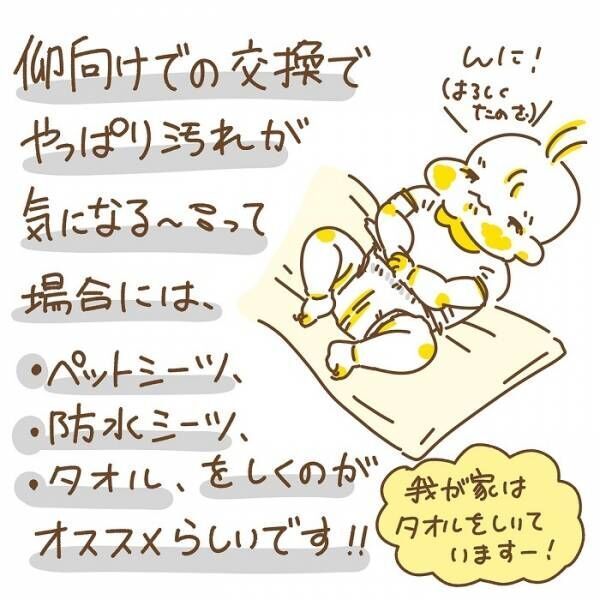 仰向けでの交換で
やっぱり汚れが
気になる〜ミって
場合には、
・ペットシーツ、
・防水シーツ、
・タオル、をしくのが
オススメらしいです!!
んに!
(はろしく
たのむ)
我が家は
タオルをしいて
いますー!